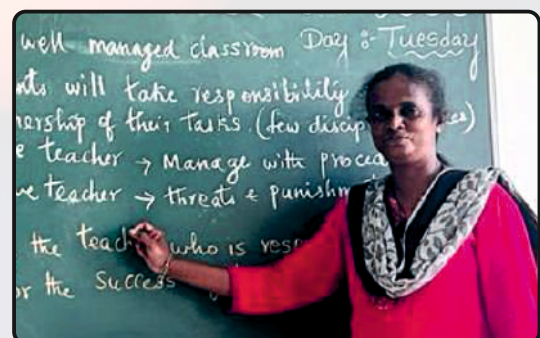 well managed classroom Day :- Tuesday
nts will take responsibility
nership of their tasks. (few discip es)
e teacher → Manage with proced
ve teacher → threats & punishm
the teach who is resp
or the success